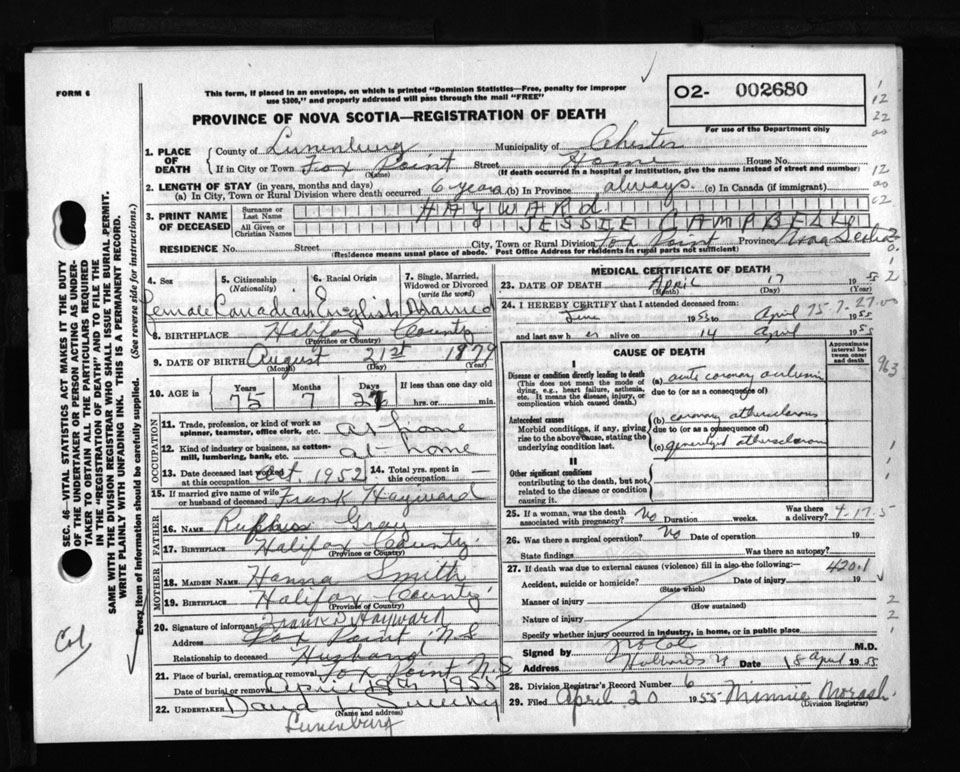 FORM 6
This form, if placed in an envelope, on which is printed "Dominion Statistics—Free, penalty for improper
use $300," and properly addressed will pass through the mail "FREE"
02- 002680
For use of the Department only
PROVINCE OF NOVA SCOTIA—REGISTRATION OF DEATH
1. PLACE OF DEATH
County of Lunenburg Municipality of Chester
If in City or Town Fox Point Street Home House No.
(Name) (If death occurred in a hospital or institution, give the name instead of street and number)
2. LENGTH OF STAY (in years, months and days)
(a) In City, Town or Rural Division where death occurred 6 years (b) In Province always. (c) In Canada (if immigrant)
3. PRINT NAME OF DECEASED
Surname or Last Name HAYWARd
All Given or Christian Names JESSIE CAMPBELL
RESIDENCE No. Street City, Town or Rural Division Fox Point Province Nova Scotia
(Residence means usual place of abode. Post Office Address for residents in rural parts not sufficient)
4. Sex
5. Citizenship (Nationality)
6. Racial Origin
7. Single, Married, Widowed or Divorced (write the word)
Female Canadian English Married
8. BIRTHPLACE Halifax County
(Province or Country)
9. DATE OF BIRTH August 21st 1879
(Month) (Day) (Year)
10. AGE in Years Months Days If less than one day old
75 7 27 hrs. or min.
OCCUPATION
11. Trade, profession, or kind of work as spinner, teamster, office clerk, etc. at home
12. Kind of industry or business, as cotton-mill, lumbering, bank, etc. at home
13. Date deceased last worked at this occupation Oct 1952
14. Total yrs. spent in this occupation —
15. If married give name of wife or husband of deceased Frank Hayward
FATHER
16. NAME Gray
17. BIRTHPLACE Halifax County.
(Province or Country)
MOTHER
18. MAIDEN NAME Hanna Smith
19. BIRTHPLACE Halifax County
(Province of Country)
20. Signature of informant Frank D Hayward
Address Fox Point N.S
Relationship to deceased Husband
21. Place of burial, cremation or removal Fox Point N.S
Date of burial or removal April 1955
22. UNDERTAKER David
(Name and address)
Lunenburg
MEDICAL CERTIFICATE OF DEATH
23. DATE OF DEATH April 17 1955
(Month) (Day) (Year)
24. I HEREBY CERTIFY that I attended deceased from:
June 1953 to April 1955
75-7-27-00
and last saw h er alive on 14 April 1955
CAUSE OF DEATH
Approximate interval between onset and death
I
Disease or condition directly leading to death
(This does not mean the mode of dying, e.g., heart failure, asthenia, etc. It means the disease, injury, or complication which caused death.)
(a) acute coronary occlusion
due to (or as a consequence of)
Antecedent causes
Morbid conditions, if any, giving rise to the above cause, stating the underlying condition last.
(b) coronary atherosclerosis
due to (or as a consequence of)
(c) generalized atherosclerosis
II
Other significant conditions
contributing to the death, but not related to the disease or condition causing it.
963
25. If a woman, was the death associated with pregnancy? No Duration weeks. Was there a delivery?
4-17-5
26. Was there a surgical operation? No Date of operation 19
State findings Was there an autopsy?
27. If death was due to external causes (violence) fill in also the following:—
420.1
Accident, suicide or homicide? Date of injury 19
(State which)
Manner of injury
(How sustained)
Nature of injury
Specify whether injury occurred in industry, in home, or in public place
Signed by M.D.
Address Date 18 April 1955
28. Division Registrar's Record Number 6
29. Filed April 20 1955 Minnie Morash.
(Division Registrar)
SEC. 46—VITAL STATISTICS ACT MAKES IT THE DUTY
OF THE UNDERTAKER OR PERSON ACTING AS UNDER-
TAKER TO OBTAIN ALL THE PARTICULARS REQUIRED
IN THE "REGISTRATION OF DEATH" AND TO FILE THE
SAME WITH THE DIVISION REGISTRAR WHO SHALL ISSUE THE BURIAL PERMIT.
WRITE PLAINLY WITH UNFADING INK. THIS IS A PERMANENT RECORD.
Every item of information should be carefully supplied. (See reverse side for instructions.)